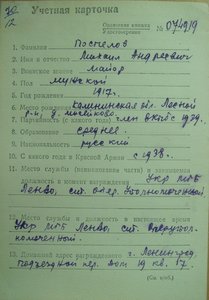 Учетная карточка
Орденская книжка
Удостоверение № 074919
1. Фамилия Поспелов
2. Имя и отчество Михаил Андреевич
3. Воинское звание майор
4. Пол мужской
5. Год рождения 1917.
6. Место рождения Калининская обл. Лесной
р-н, д.
7. Партийность (с какого года) член ВКП(б) с 1939.
8. Образование среднее.
9. Национальность русский
10. С какого года в Красной Армии с 1938.
11. Место службы (наименование части) и занимаемая
должность в момент награждения Укр МГБ
Ленво, ст. опер. уполномоченный.
12. Место службы и должность в настоящее время
Укр МГБ Ленво, ст. оперупол-
номоченный.
13. Домашний адрес награжденного г. Ленинград,
Подъездной пер. дом 19 кв. 7.
(См. н/об.)